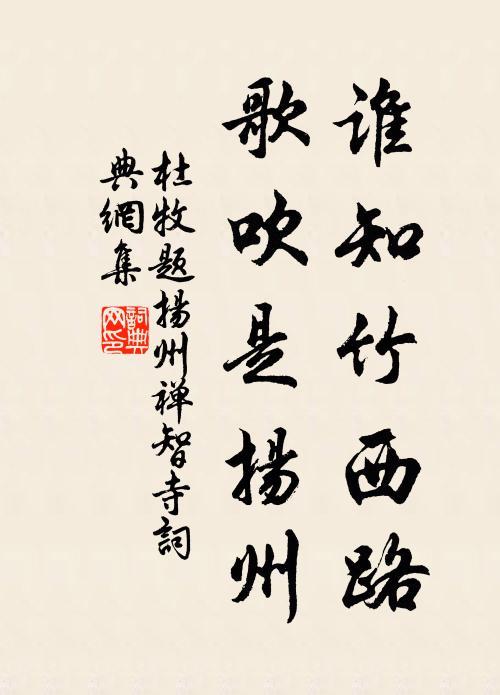 谁知竹西路
歌吹是揚州
杜牧题揚州禅智寺詞
典網集
詞典
网印